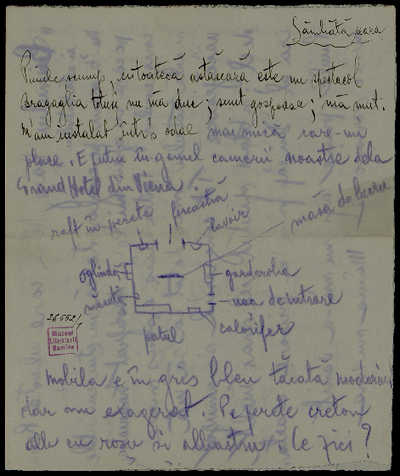 Sâmbătă seara
Puiule scump, cu toate că astăseară este un spectacol
Bragaglia totuși nu mă duc; sunt gospodar; mă mut.
M'am instalat într'o odae mai mică care-mi
place. E puțin în genul camerii noastre dela
Grand Hotel din Viena.
raft în perete fereastră lavoir masă de lucru
oglindă garderobă
măsuță ușa de intrare
patul calorifer
26552/1
Muzeul
Literaturii
Române
mobila e în gris bleu tăiată modern
dar nu exagerat. Perete creton
alb cu roșu și albastru. Ce zici?